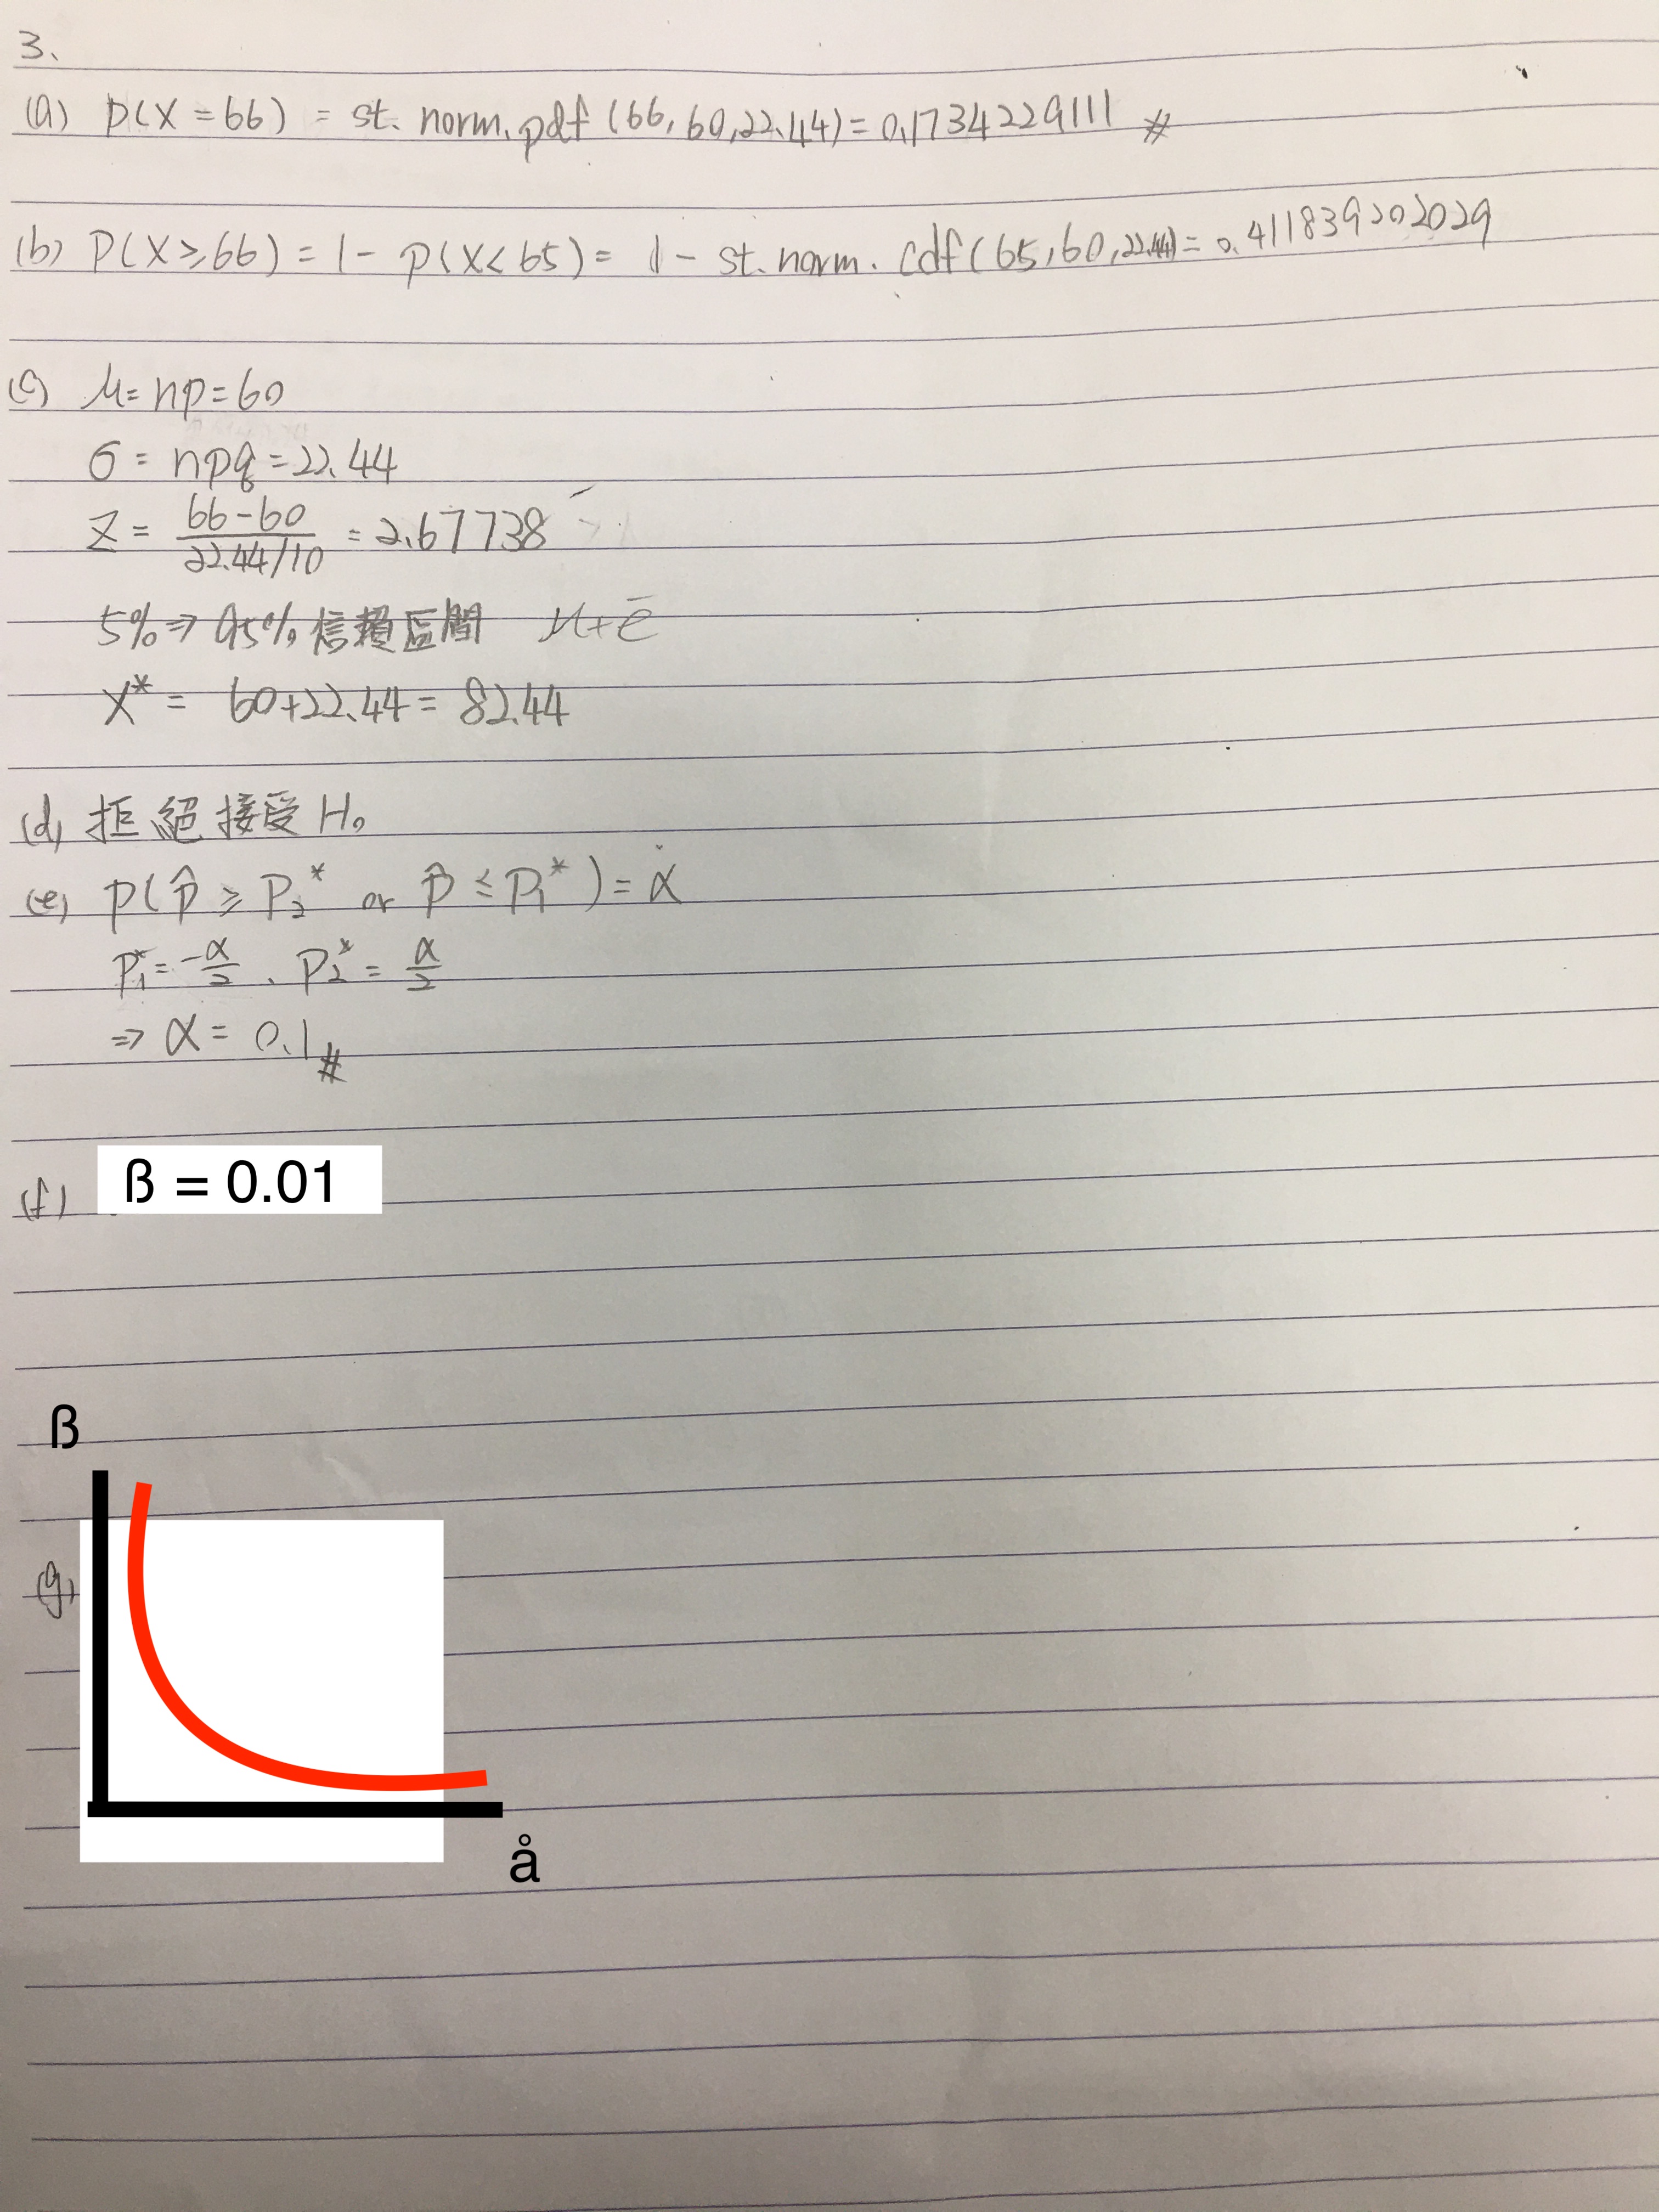 3、
(a) P(X=66) = st. norm.pdf (66,60,22.44)=0.1734229111 #
(b) P(X≥66) = 1- P(X<65) = 1- st. norm. cdf(65,60,22.44)= 0.411839202029
(c) μ= np=60
σ= npq=22.44
Z = (66-60)/(22.44/10) = 2.67738
5% ⇒ 95% 信賴区間 μ+ē
X* = 60+22.44= 82.44
(d) 拒絕接受H0
(e) P(p̂ ≥ P2* or p̂ ≤ P1*) = α
P1*= -α/2 、P2* = α/2
⇒ α = 0.1 #
(f) ß = 0.01
ß
(g)
å